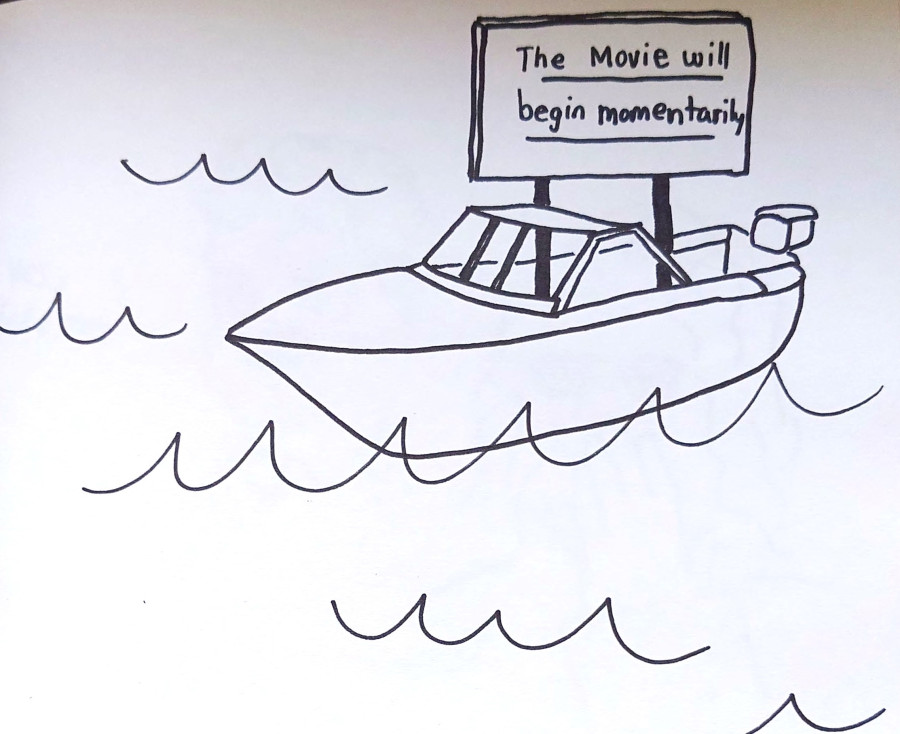 The Movie will
begin momentarily